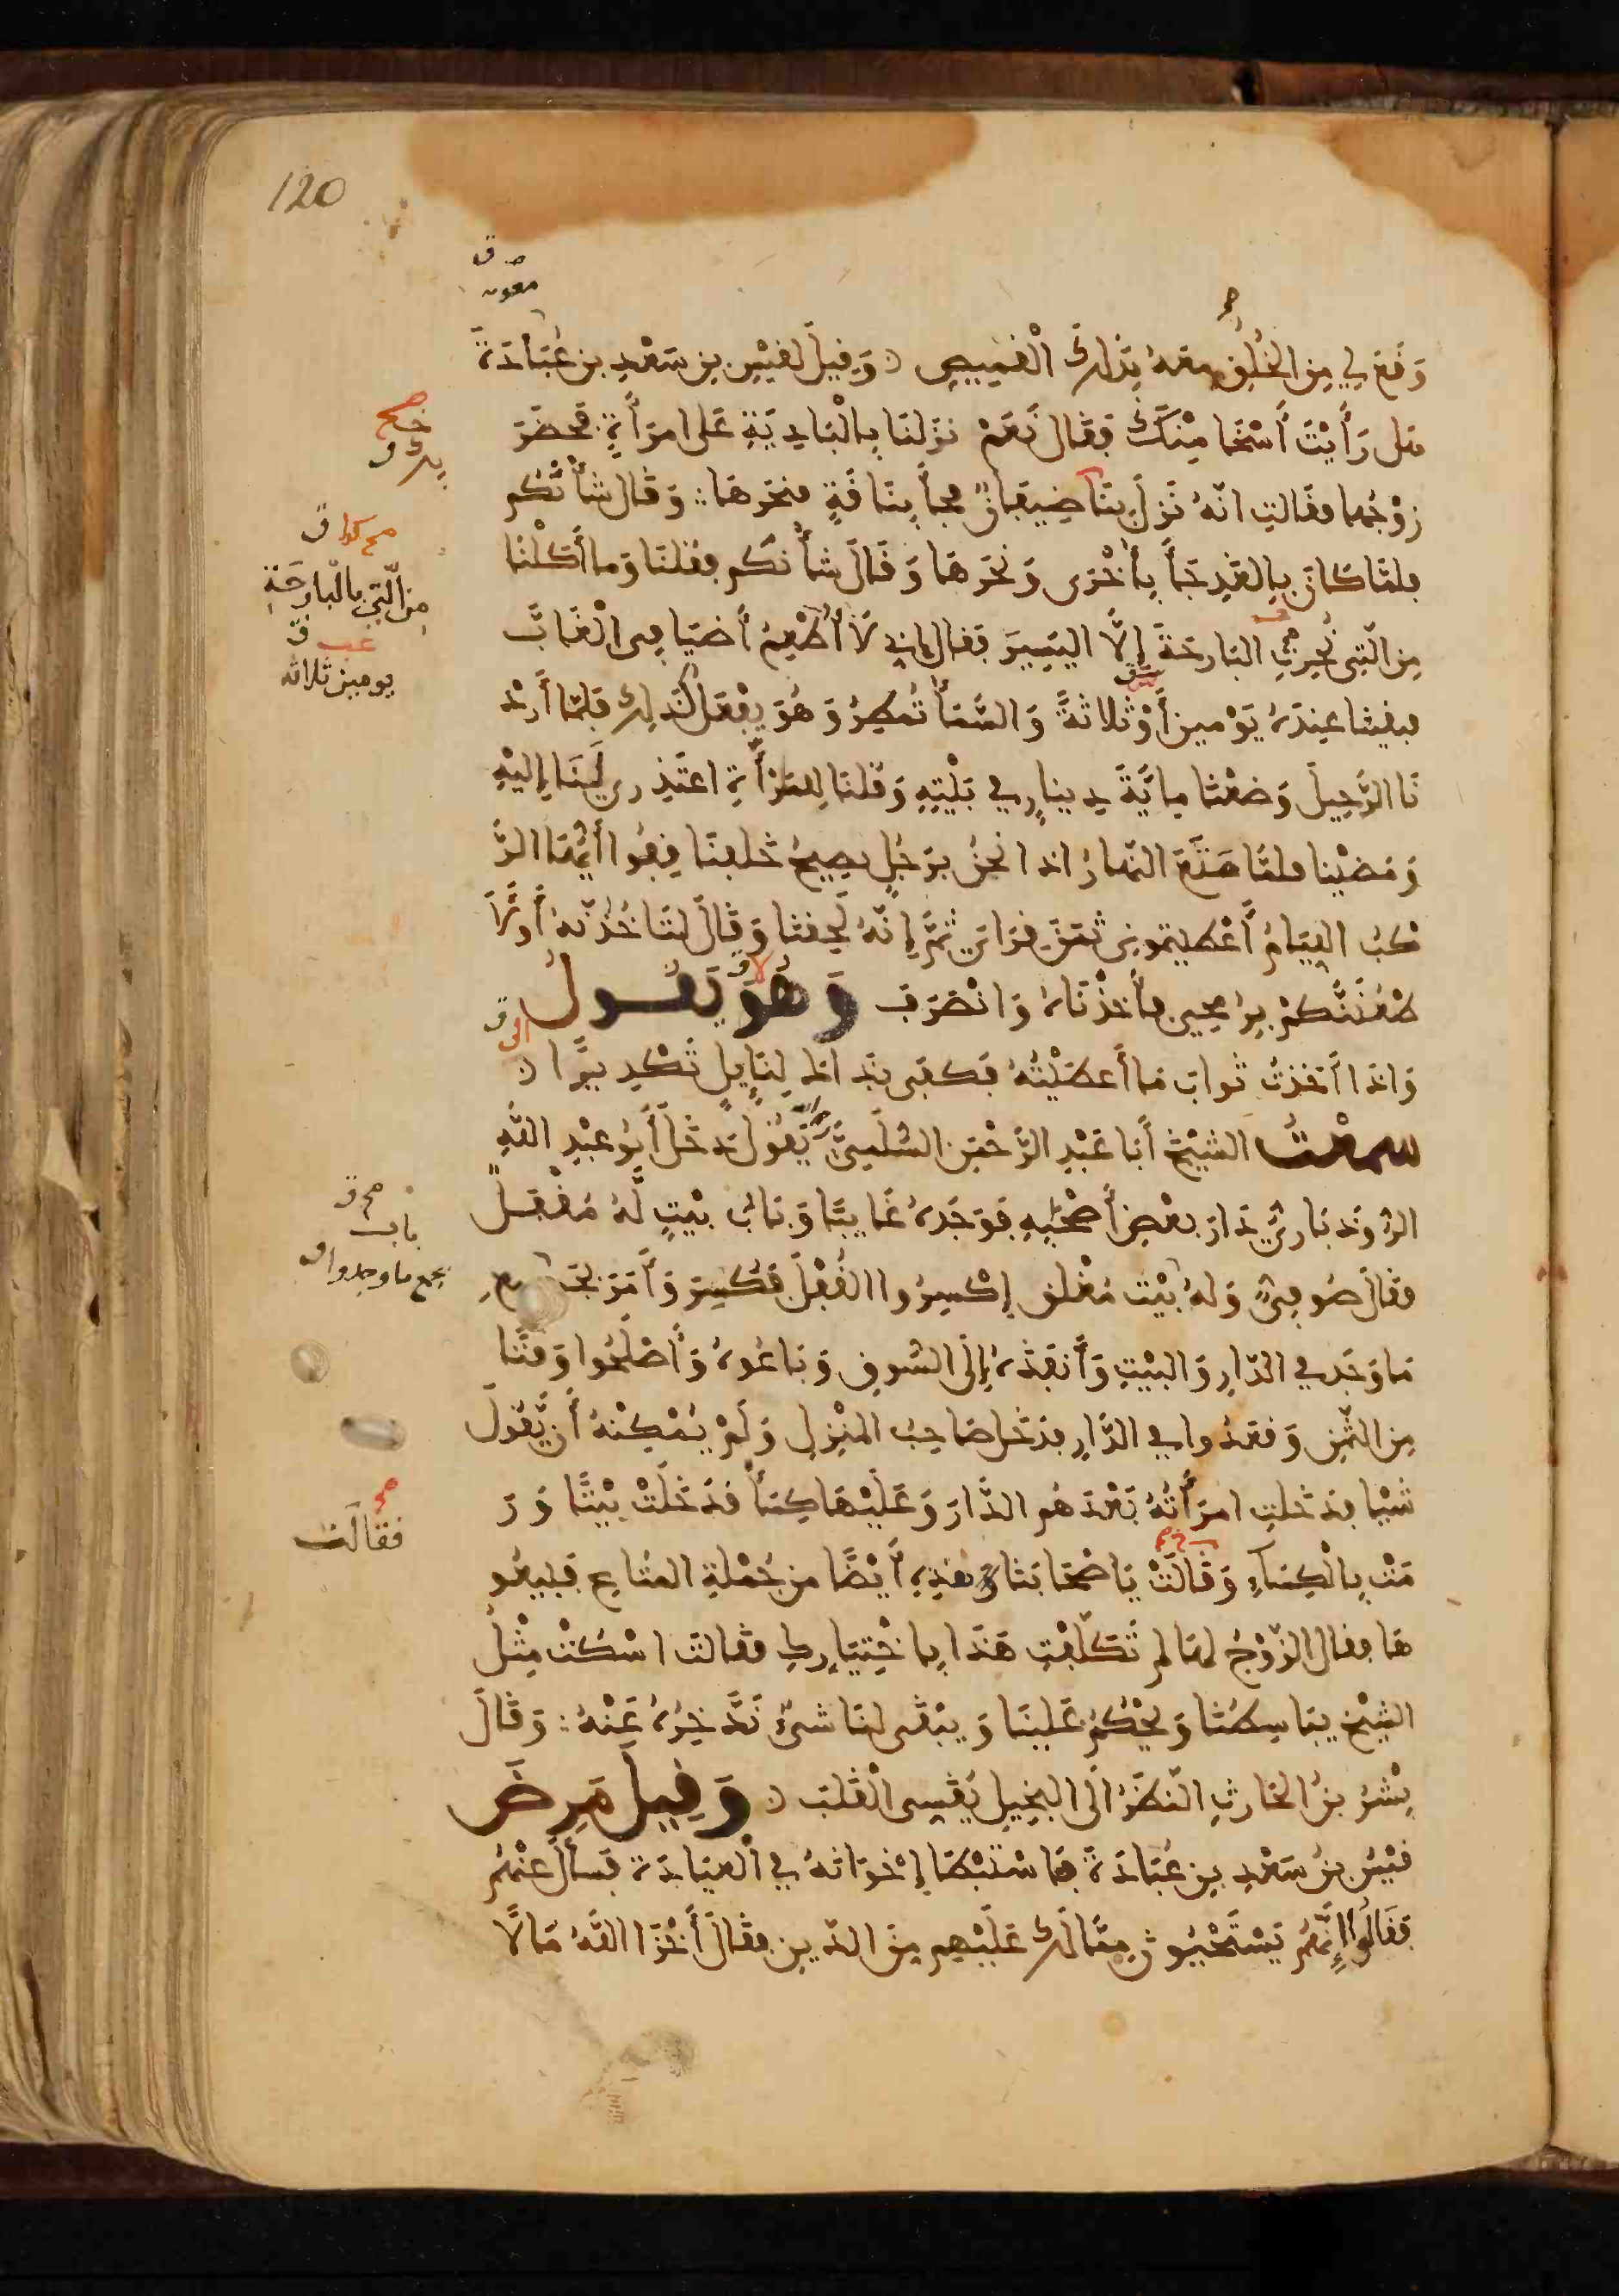 120
وَقَعَ لِي مِنَ الْخُلُقِ معهُ بِذَلِكَ الْقَمِيصِ وَقِيلَ لقَيْسِ بنِ سَعْدِ بنِ عُبَادَةَ
هل رَأَيْتَ أَسْخَا مِنْكَ فقال نَعَمْ نزلنَا بِالْبَادِيَةِ عَلى امرَأَةٍ فحضَرَ
زوْجُها فقَالتِ انّهُ نَزَلَ بنَا ضِيفَانٌ فجأَ بنَاقَةٍ فنحَرهَا وَقال شأْنُكُم
فلمّا كانَ بِالغَدِ جَأَ بِأُخْرى وَنَحَرهَا وَقَالَ شأْنكُم فقلنَا وَما أَكَلْنَا
مِنَ الّتِى نُحِرتِ البَارحَةَ إِلَّا اليَسِيرَ فقال إِنى لَا أُطْعِمُ أَضيَافِى الْغَابَّ
فبقينا عِندَهُ يَوْمينِ أَوْ ثَلاثَةً وَالسَّمَأُ تُمْطِرُ وَهُوَ يَفْعَلُ كَذَلِكَ فلمّا أَرَدْ
نَا الرَّحِيلَ وَضعْنا مِائَةَ دِينارٍ في بَيْتِهِ وَقلنَا لِلمَرْأَةِ اعتَذِري لَنَا إِليْهِ
وَمَضيْنا فلمّا مَتَعَ النّهارُ اذا نَحْنُ برَجُلٍ يصِيحُ خلفنَا قِفُوا أَيُّهَا الرَّ
كْبُ اللِّيَامُ أَعْطيتمُونى ثَمَنَ قِرَايَ ثُمَّ إِنّهُ لَحِقنَا وَقالَ لتَأخُذُنّهُ أَوْ لَا
طْعُنَنَّكمْ بِرُمحِى فأَخذْنَاهُ وَانْصَرَفَ وَهُوَ يَقُولُ
وَاذا أَخَذتُ ثوابَ مَا أَعطَيْتُهُ فكفى بذاكَ لِنَايِلٍ تَكْدِيرًا
سمعْتُ الشيْخَ أَبَا عَبْدِ الرَّحْمَنِ السُّلَمِيَّ يَقُولُ دَخَلَ أَبُو عَبْدِ اللهِ
الرُّوذبَارِيُّ دَارَ بعْضِ أَصْحَابِهِ فوَجَدَهُ غَايبًا وَبَابُ بيْتٍ لَهُ مُقْفَلٌ
فقالَ صُوفِيٌّ وَلهُ بيْت مُغْلَق إِكْسِرُوا القُفْلَ فكُسِرَ وَأَمَرَ بجمعِ
مَا وَجَدَ في الدّارِ وَالبيْتِ وَأَنفَذَهُ إِلَى السُّوقِ وَبَاعُوهُ وَأَصْلَحُوا وَقتًا
مِنَ الثّمَنِ وَقعَدُوا في الدَّارِ فدَخَلَ صَاحِبُ المنْزِلِ وَلَمْ يُمْكِنْهُ أَن يَّقُولَ
شَيْا فدَخلتِ امرَأَتُهُ بَعْدَهُمُ الدَّارَ وَعَلَيْهَا كِسَأٌ فدَخَلَتْ بيْتًا وَرَ
مَتْ بِالْكِسَاءِ وَقَالَتْ يَا صْحَابَنَا هَذِهِ أَيْضًا من جُمْلَةِ المتَاعِ فَبِيعُو
هَا فقال الزّوْجُ لهَا لم تَكَلّفْتِ هَذَا بِاخْتِيَارِكِ فقالت اسْكتْ مِثْلُ
الشيْخِ يبَاسِطُنَا وَيَحْكُمُ عَلينَا وَيبْقَى لنَا شئٌ نَدَّخِرُهُ عَنْهُ وَقَالَ
بِشْرُ بنُ الحَارثِ النّظَرُ الَى البَخِيلِ يُقَسِى الْقَلْبَ وَقِيلَ مَرِضَ
قيْسُ بنُ سَعْدِ بنِ عُبَادَةَ فاسْتَبْطَا إِخْوَانَهُ في الْعِيَادَةِ فسألَ عنْهُم
فقَالُوا إِنَّهُم يَسْتَحْيُونَ مِمَّا لَكَ عَلَيْهِم مِنَ الدّينِ فقالَ أَخْزَا اللهُ مَالًا
صح
مِنَ الّتي بالبارحَةِ
يومين ثلاثه
باب
بجمع ما وجدوا
فقالَت